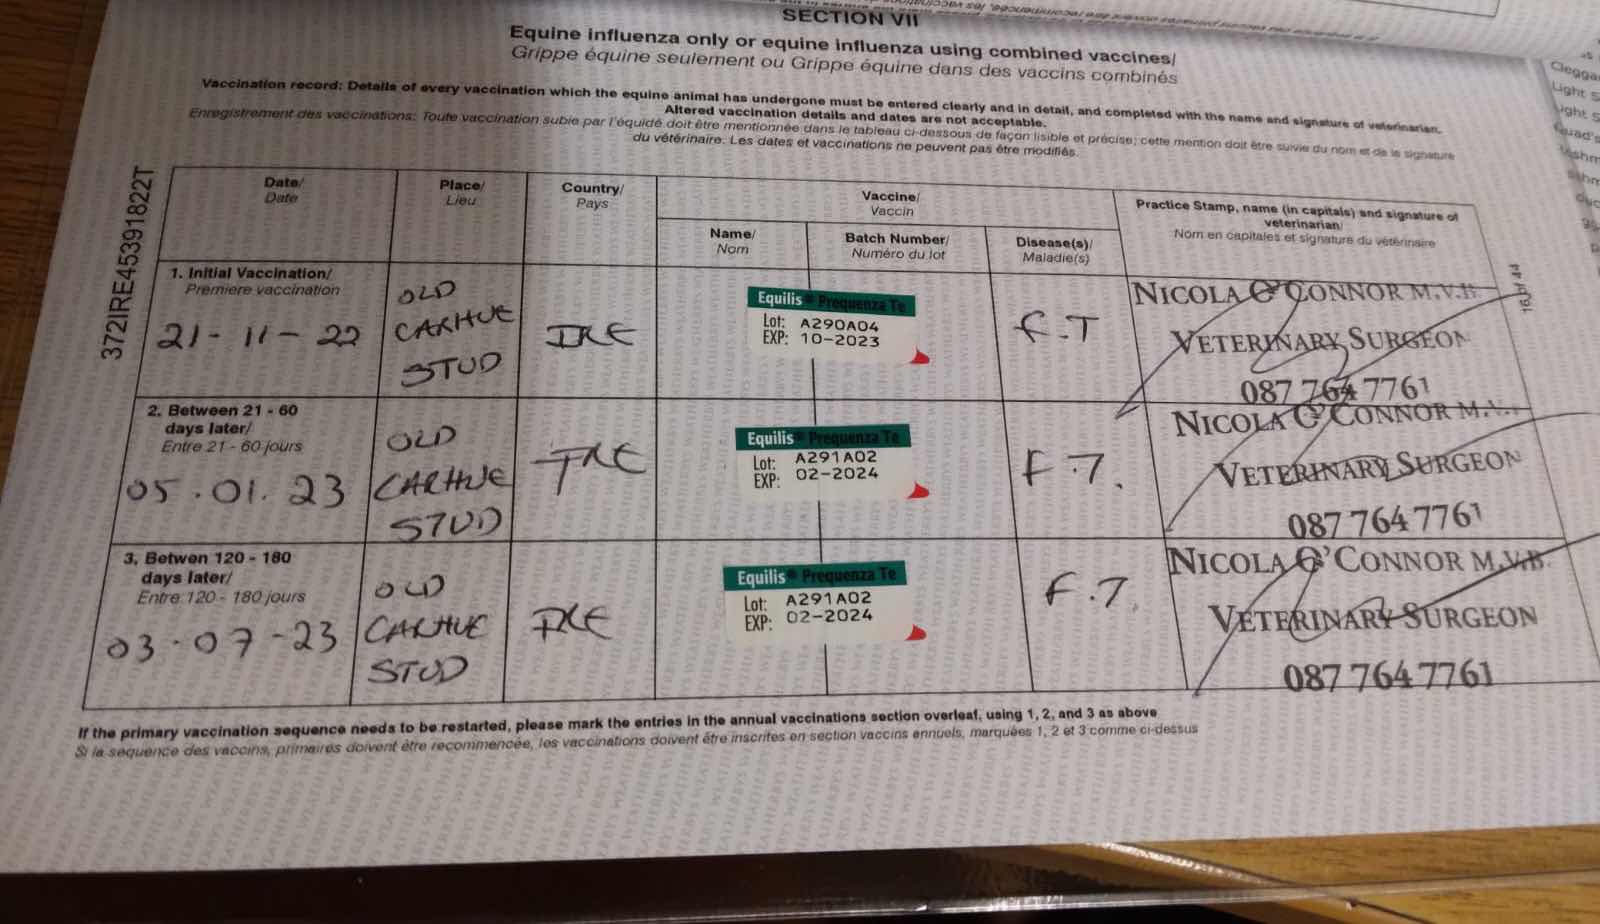 SECTION VII
Equine influenza only or equine influenza using combined vaccines/
Grippe équine seulement ou Grippe équine dans des vaccins combinés
Vaccination record: Details of every vaccination which the equine animal has undergone must be entered clearly and in detail, and completed with the name and signature of veterinarian.
Altered vaccination details and dates are not acceptable.
Enregistrement des vaccinations: Toute vaccination subie par l'équidé doit être mentionnée dans le tableau ci-dessous de façon lisible et précise; cette mention doit être suivie du nom et de la signature
du vétérinaire. Les dates et vaccinations ne peuvent pas être modifiés.
372IRE45391822T
Date/
Date
Place/
Lieu
Country/
Pays
Vaccine/
Vaccin
Name/
Nom
Batch Number/
Numéro du lot
Disease(s)/
Maladie(s)
Practice Stamp, name (in capitals) and signature of
veterinarian/
Nom en capitales et signature du vétérinaire
1. Initial Vaccination/
Premiere vaccination
21-11-22
OLD
CARHUE
STUD
IRE
Equilis® Prequenza Te
Lot: A290A04
EXP: 10-2023
F.T
NICOLA O'CONNOR M.V.B.
VETERINARY SURGEON
087 764 7761
2. Between 21 - 60
days later/
Entre 21 - 60 jours
05.01.23
OLD
CARHUE
STUD
IRE
Equilis® Prequenza Te
Lot: A291A02
EXP: 02-2024
F.T.
NICOLA O'CONNOR M.V.B.
VETERINARY SURGEON
087 764 7761
3. Betwen 120 - 180
days later/
Entre 120 - 180 jours
03.07-23
OLD
CARHUE
STUD
IRE
Equilis® Prequenza Te
Lot: A291A02
EXP: 02-2024
F.T.
NICOLA O'CONNOR M.V.B.
VETERINARY SURGEON
087 764 7761
16 of 44
If the primary vaccination sequence needs to be restarted, please mark the entries in the annual vaccinations section overleaf, using 1, 2, and 3 as above
Si la sequence des vaccins, primaires doivent être recommencée, les vaccinations doivent être inscrites en section vaccins annuels, marquées 1, 2 et 3 comme ci-dessus